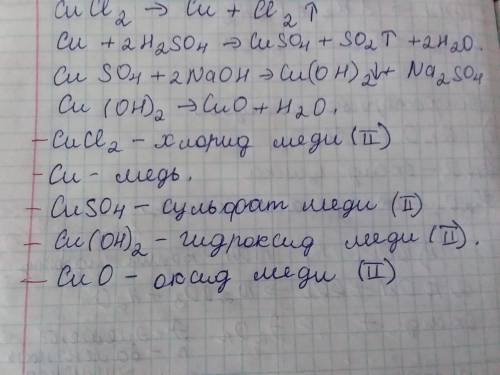 CuCl₂ → Cu + Cl₂↑
Cu + 2H₂SO₄ → CuSO₄ + SO₂↑ + 2H₂O.
CuSO₄ + 2NaOH → Cu(OH)₂↓ + Na₂SO₄
Cu(OH)₂ → CuO + H₂O.
- CuCl₂ - хлорид меди (II)
- Cu - медь.
- CuSO₄ - сульфат меди (II)
- Cu(OH)₂ - гидроксид меди (II).
- CuO - оксид меди (II)